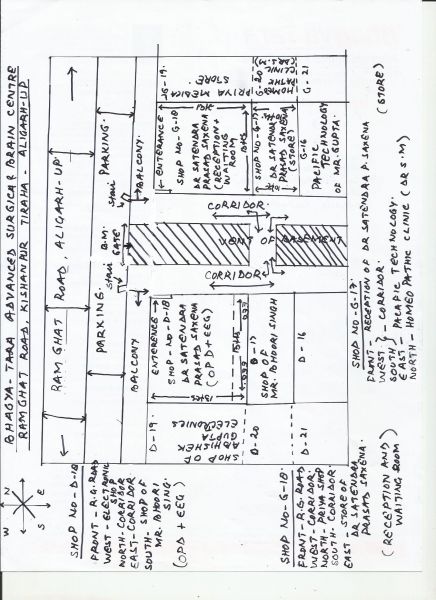 BHAGYA-TARA ADVANCED SURGICAL & BRAIN CENTRE
RAMGHAT ROAD, KISHANPUR TIRAHA - ALIGARH-U.P.
N
E
S
W
RAM GHAT ROAD, ALIGARH-UP.
PARKING.
PARKING.
Stair
B.M.
GATE
Stair
BALCONY
BALCONY.
D-19.
SHOP OF
ABHISHEK
GUPTA
ELECTRONICS
D-20
D-21
ENTERENCE
SHOP-NO-D-18
DR SATENDRA
PRASAD SAXENA
(OPD + EEG)
D-17
SHOP OF
MR. BHOORI SINGH
D-16
CORRIDOR
VENT OF BASEMENT
CORRIDOR
ENTERENCE
SHOP NO-G-18
DR SATENDRA
PRASAD SAXENA
(RECEPTION +
WAITING
ROOM
SHOP NO-G-17
DR SATENDRA
PRASAD SAXENA
(STORE)
G-16
PACIFIC
TECHNOLOGY
OF MR. GUPTA.
G-19.
PRIYA MEDICAL
STORE.
G-20
HOMEO
PATHIC
CLINIC
(DR S.M)
G-21
SHOP NO-D-18
FRONT - R.G. ROAD
WEST - ELECTRONIC
SHOP
NORTH-CORRIDOR
EAST-CORRIDOR
SOUTH - SHOP OF
MR. BHOORI
SING.
(OPD + EEG)
SHOP NO-G-18
FRONT - R.G. ROAD
WEST-CORRIDOR.
NORTH-PRIYA SHOP
SOUTH-CORRIDOR
EAST - STORE OF
DR SATENDRA
PRASAD SAXENA.
(RECEPTION AND
WAITING ROOM)
SHOP NO-G-17.
FRONT - RECEPTION OF DR SATENDRA P. SAXENA
WEST
SOUTH } - CORRIDOR.
EAST - PACIFIC TECHNOLOGY.
NORTH - HOMEO PATHIC CLINIC (DR S.M)
(STORE)